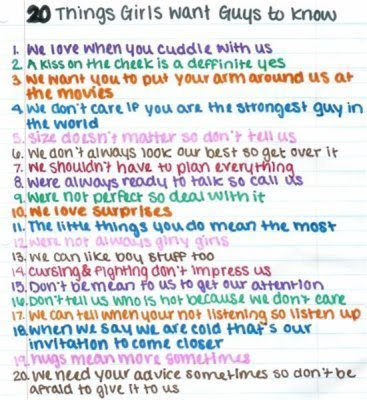 20 Things Girls want Guys to know
1. we love when you cuddle with us
2. A kiss on the cheek is a deffinite yes
3. we want you to put your arm around us at
the movies
4. we don't care if you are the strongest guy in
the world
5. size doesn't matter so don't tell us
6. we don't always look our best so get over it
7. we shouldn't have to plan everything
8. we're always ready to talk so call us
9. we're not perfect so deal with it
10. we love surprises
11. The little things you do mean the most
12. were not always girly girls
13. we can like boy stuff too
14. cursing & fighting don't impress us
15. Don't be mean to us to get our attention
16. Don't tell us who is hot because we don't care
17. we can tell when your not listening so listen up
18. when we say we are cold that's our
invitation to come closer
19. hugs mean more sometimes
20. we need your advice sometimes so don't be
afraid to give it to us